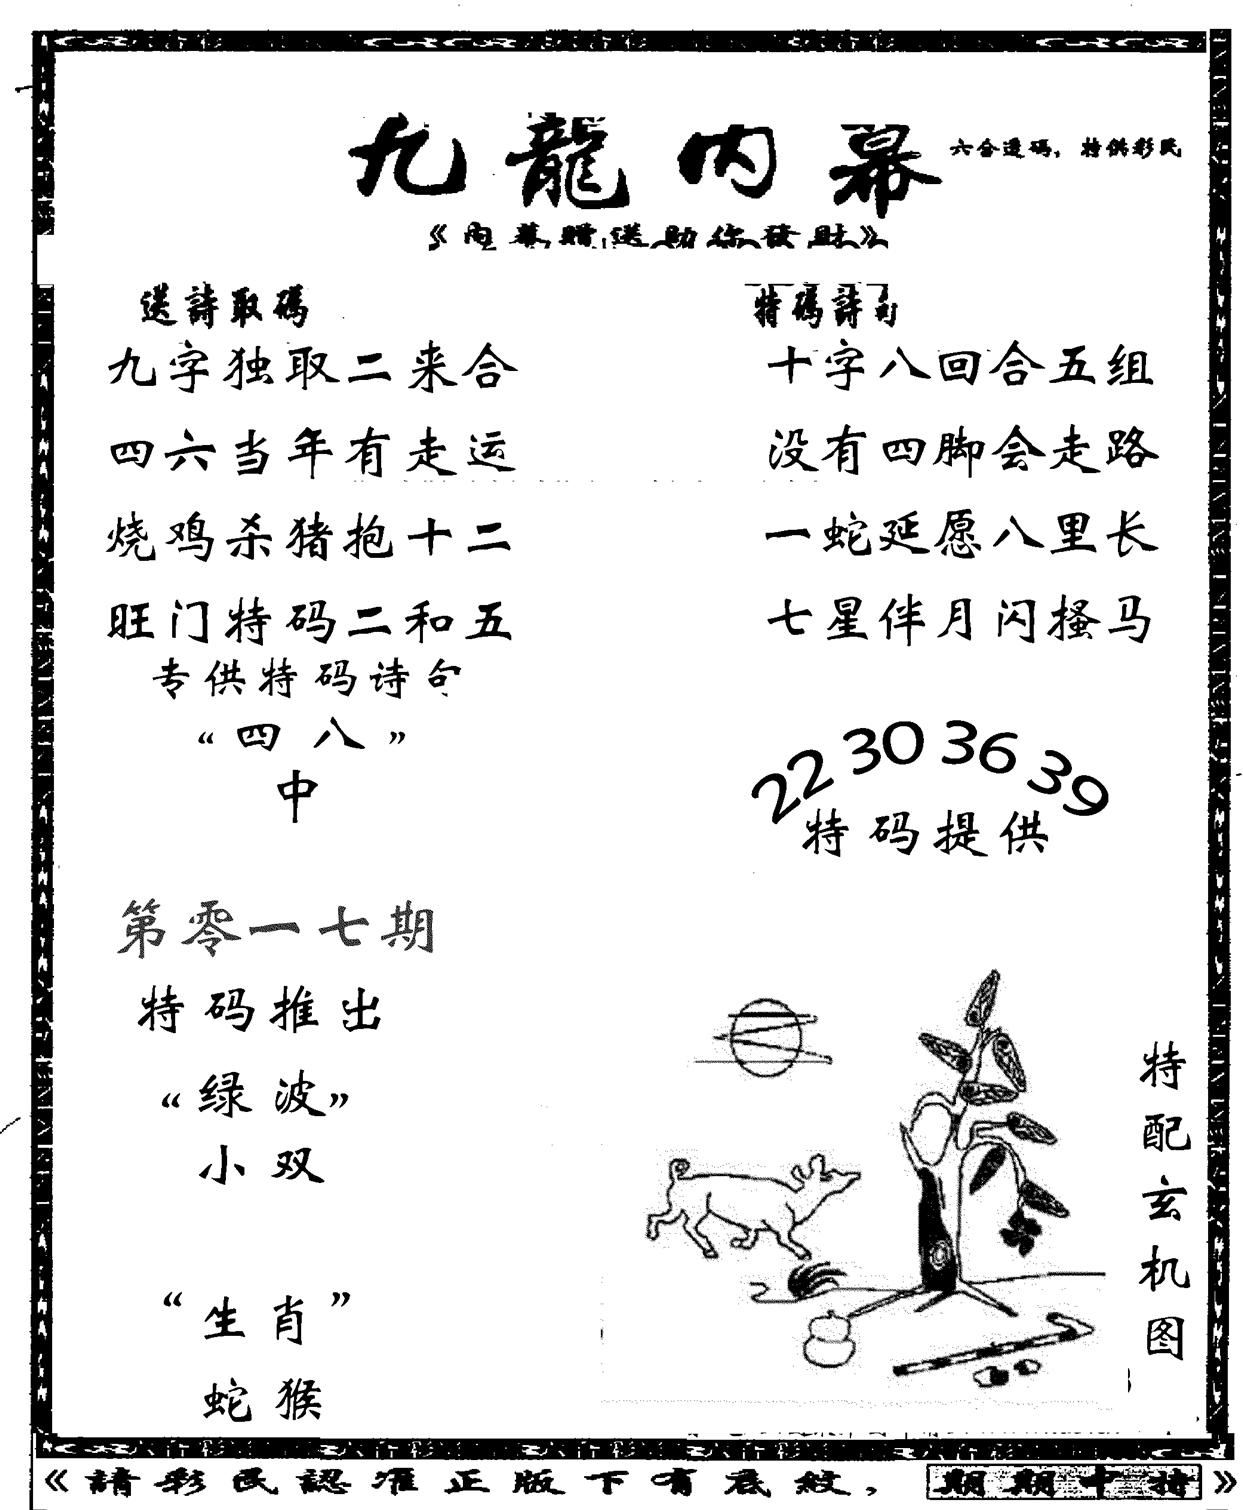 九龍内幕
六合透码，特供彩民
《內幕贈送助你發財》
送詩取碼
九字独取二来合
四六当年有走运
烧鸡杀猪抱十二
旺门特码二和五
专供特码诗句
“四八”
中
特碼詩句
十字八回合五组
没有四脚会走路
一蛇延愿八里长
七星伴月闪搔马
22 30 36 39
特码提供
第零一七期
特码推出
“绿波”
小双
“生肖”
蛇猴
特配玄机图
《請彩民認准正版下有底紋，期期中特》